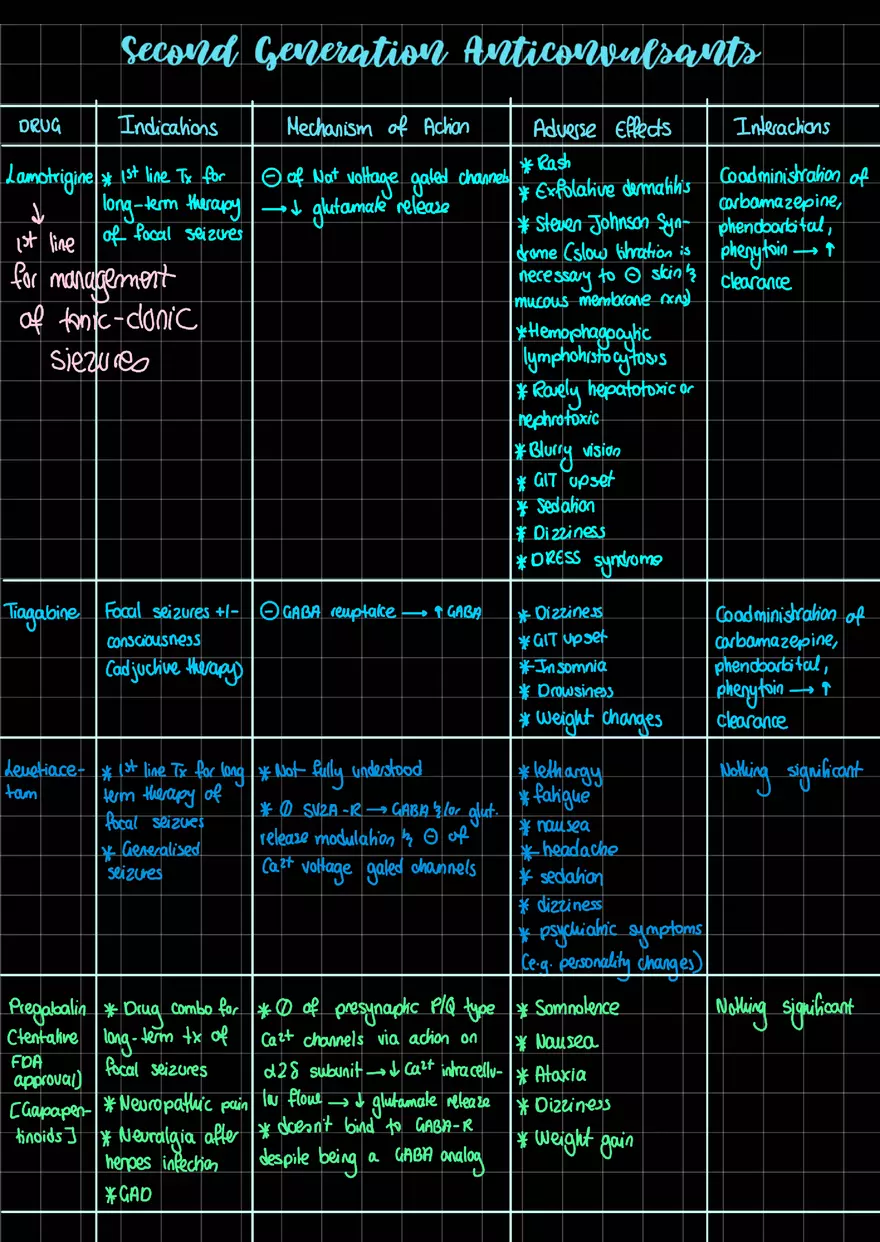 Second Generation Anticonvulsants
DRUG
Indications
Mechanism of Action
Adverse Effects
Interactions
Lamotrigine
↓
1st line
for management
of tonic-clonic
siezures
* 1st line Tx for
long-term therapy
of focal seizures
⊖ of Na+ voltage gated channels
→↓ glutamate release
* Rash
* Exfolative dermatitis
* Steven Johnson Syn-
drome (slow titration is
necessary to ⊖ skin &
mucous membrane rxns)
* Hemophagocytic
lymphohistocytosis
* Rarely hepatotoxic or
nephrotoxic
* Blurry vision
* GIT upset
* Sedation
* Dizziness
* DRESS syndrome
Coadministration of
carbamazepine,
phendoarbital,
phenytoin → ↑
clearance
Tiagabine
Focal seizures +/-
consciousness
(adjuctive therapy)
⊖ GABA reuptake → ↑ GABA
* Dizziness
* GIT upset
* Insomnia
* Drowsiness
* Weight changes
Coadministration of
carbamazepine,
phendoarbital,
phenytoin → ↑
clearance
Levetiace-
tam
* 1st line Tx for long
term therapy of
focal seizures
* Generalised
seizures
* Not fully understood
* SV2A-R → GABA &/or glut.
release modulation & ⊖ of
Ca2+ voltage gated channels
* lethargy
* fatigue
* nausea
* headache
* sedation
* dizziness
* psychiatric symptoms
(e.g. personality changes)
Nothing significant
Pregabalin
(tentative
FDA
approval)
[Gapapen-
tinoids]
* Drug combo for
long-term tx of
focal seizures
* Neuropathic pain
* Neuralgia after
herpes infection
* GAD
* of presynaptic P/Q type
Ca2+ channels via action on
α2δ subunit → ↓ Ca2+ intracellu-
lar flow → ↓ glutamate release
* doesn't bind to GABA-R
despite being a GABA analog
* Somnolence
* Nausea
* Ataxia
* Dizziness
* Weight gain
Nothing significant